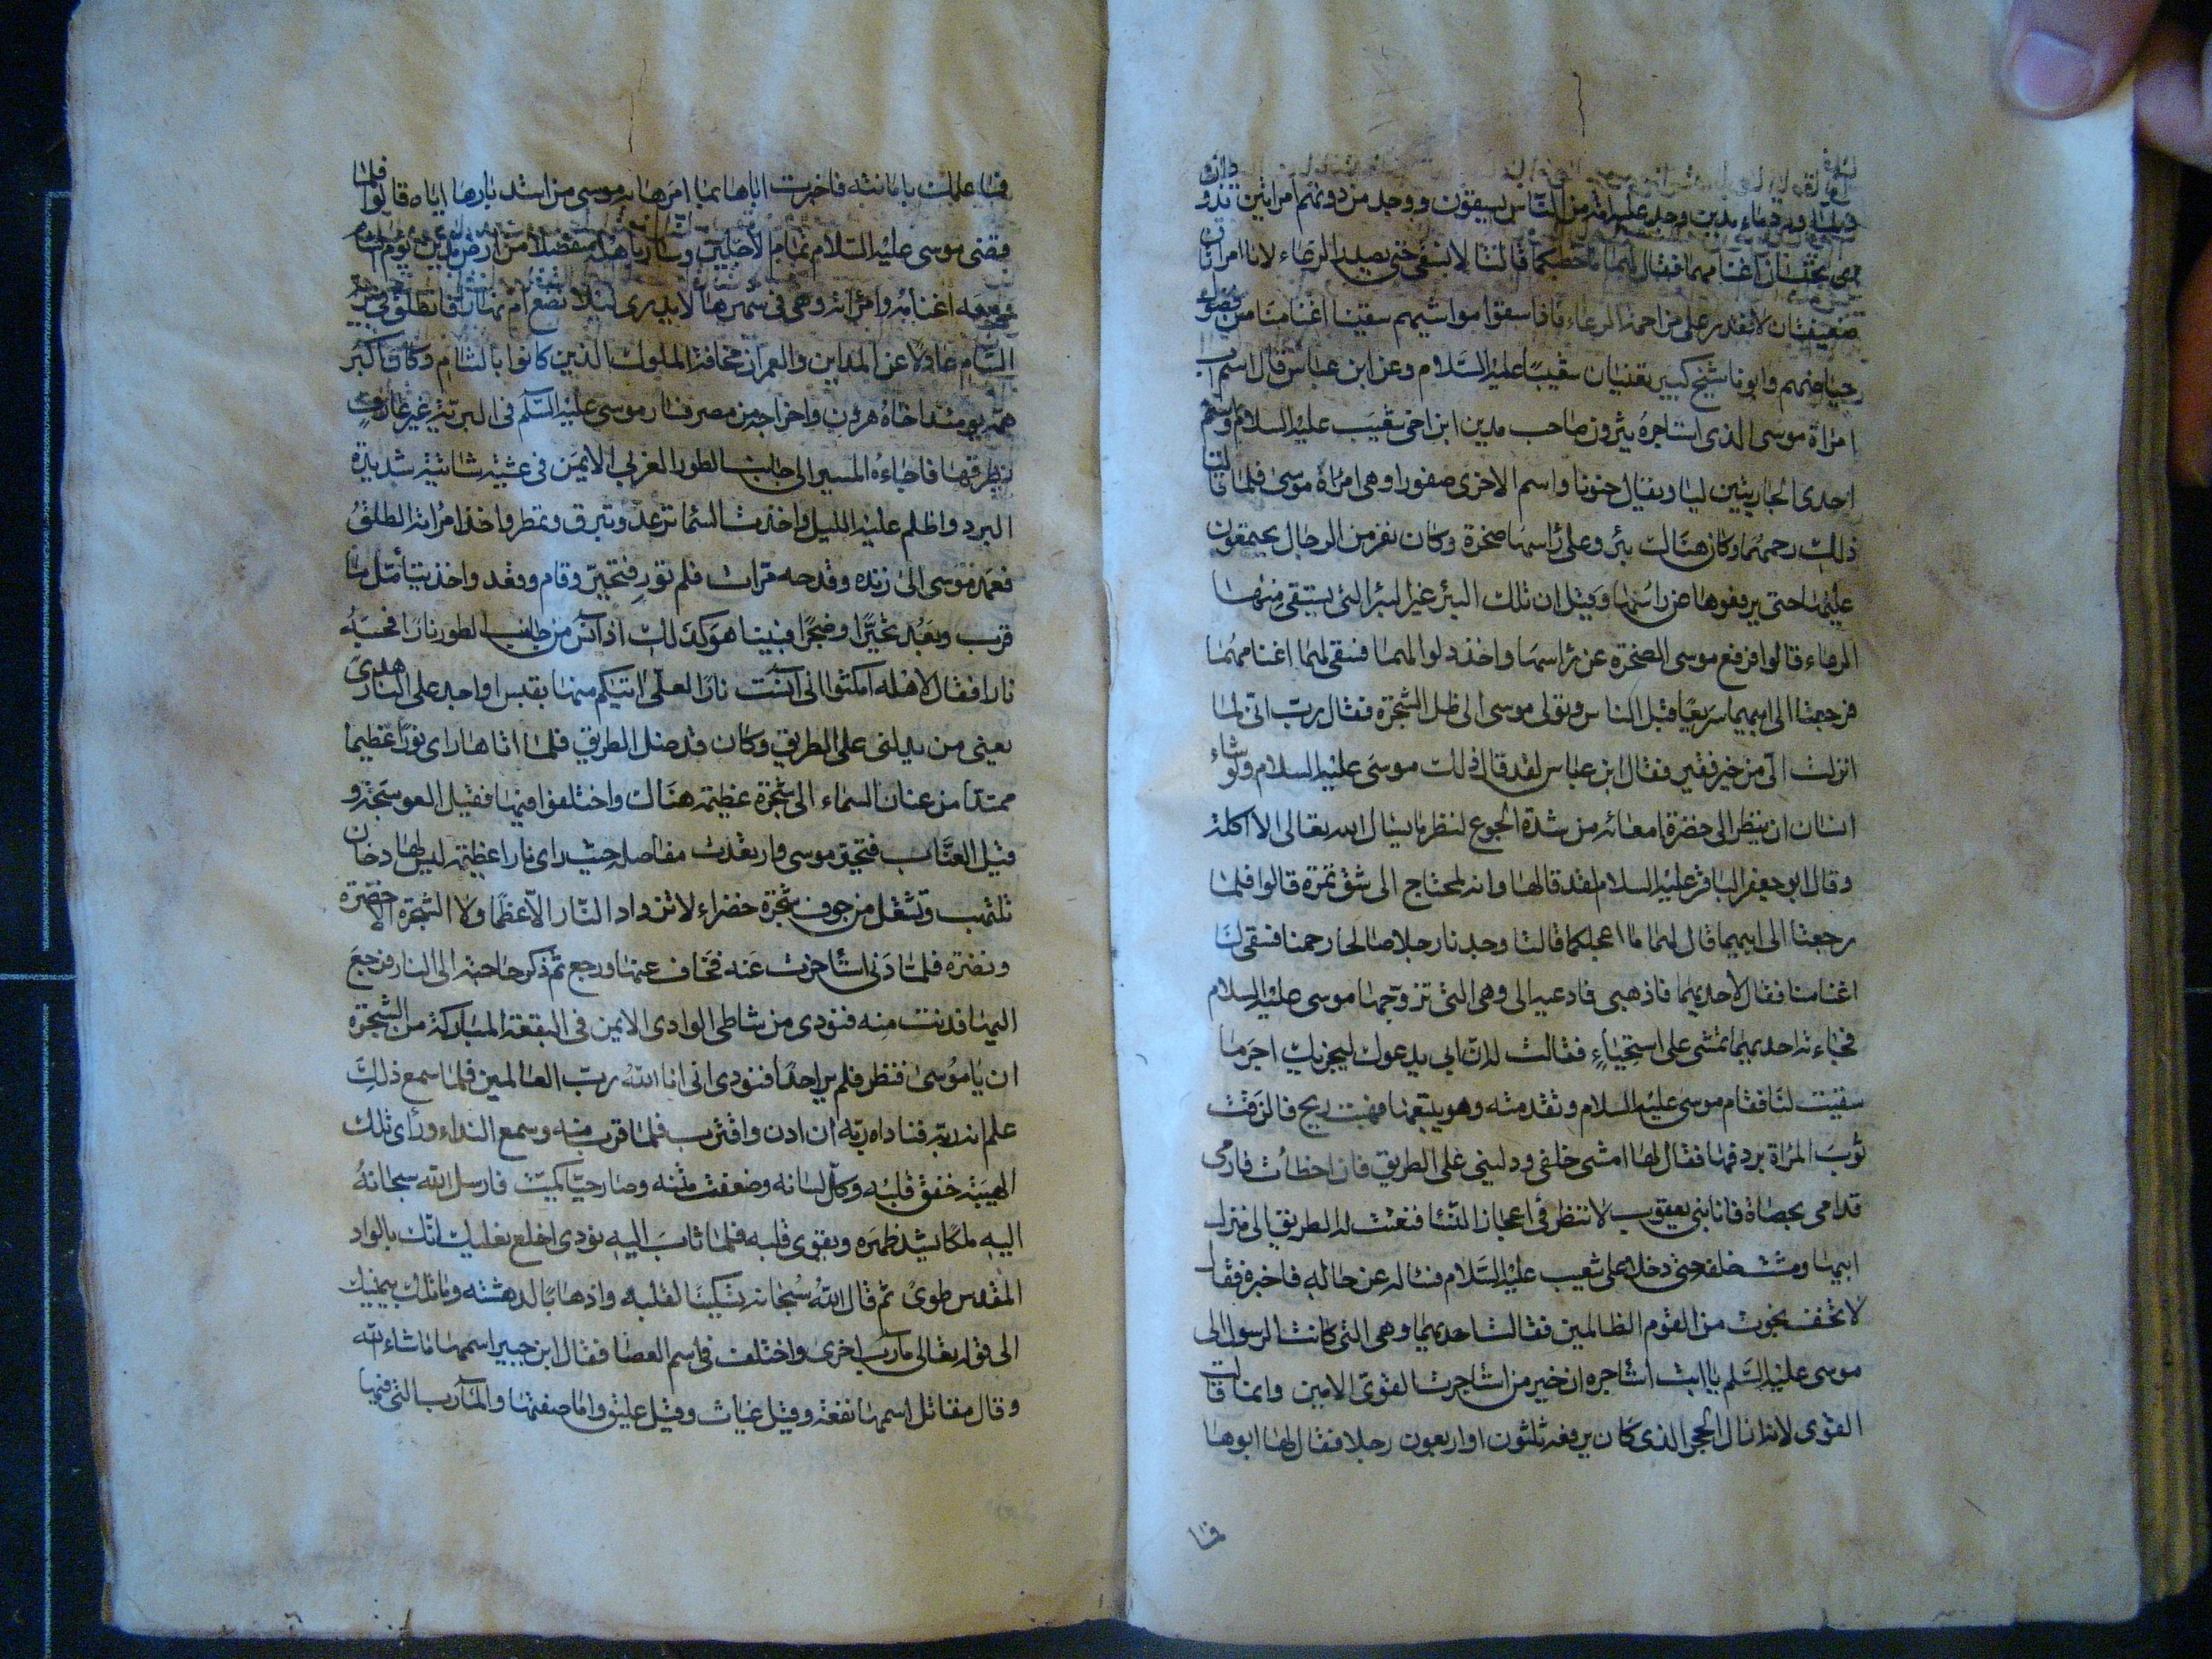 ورد ماء مدين وجد عليه امة من الناس يسقون ووجد من دونهم امراتين تذو
فقال لهما ما خطبكما قالتا لا نسقى حتى يصدر الرعاء لانا امراتان
ضعيفتان لا نقدر على مزاحمة الرعاء فاذا سقوا مواشيهم سقينا اغنامنا من فضول
حياضهم وابونا شيخ كبير تعنيان شعيبا عليه السلام وعن ابن عباس قال اسم اب
امراة موسى الذى استاجره يثرون صاحب مدين ابن اخى شعيب عليه السلام واسم
احدى الجاريتين ليا ويقال حنونا واسم الاخرى صفورا وهى امراة موسى فلما قالتا
ذلك رحمهما وكان هنالك بئر وعلى راسها صخرة وكان نفر من الرجال يجتمعون
عليها حتى يرفعوها عن راسها وقيل ان تلك البئر غير البئر التى يستقى منها
الرعاء قالوا فرفع موسى الصخرة عن راسها واخذ دلوا لهما فسقى لهما اغنامهما
فرجعتا الى ابيهما سريعا قبل الناس وتولى موسى الى ظل الشجرة فقال رب انى لما
انزلت الى من خير فقير فقال ابن عباس لقد قال ذلك موسى عليه السلام ولو شاء
انسان ان ينظر الى خضرة امعائه من شدة الجوع لنظر ما يسال الله تعالى الا اكلة
وقال ابو جعفر الباقر عليه السلام لقد قالها وانه لمحتاج الى شق تمرة قالوا فلما
رجعتا الى ابيهما قال لهما ما اعجلكما قالتا وجدنا رجلا صالحا رحمنا فسقى لنا
اغنامنا فقال لاحديهما فاذهبى فادعيه الى وهى التى تزوجها موسى عليه السلام
فجاءته احديهما تمشى على استحياء فقالت له ان ابى يدعوك ليجزيك اجر ما
سقيت لنا فقام موسى عليه السلام وتقدمته وهو يتبعها فهبت ريح فالزقت
ثوب المراة بردفها فقال لها امشى خلفى ودلينى على الطريق فان اخطات فارمى
قدامى بحصاة فانا بنى يعقوب لا ننظر فى اعجاز النساء فنعتت له الطريق الى منزل
ابيها ومشت خلفه حتى دخلا على شعيب عليه السلام فساله عن حاله فاخبره فقال
لا تخف نجوت من القوم الظالمين فقالت احديهما وهى التى كانت الرسول الى
موسى عليه السلم يا ابت استاجره ان خير من استاجرت القوى الامين وانما قالت
القوى لانه ازال الحجر الذى كان يرفعه ثلثون او اربعون رجلا فقال لها ابوها
فما
فما علمك بامانته فاخبرت اباها بما امرها به موسى من استدبارها اياه قالوا فلما
قضى موسى عليه السلام تمام الاجلين وسار باهله منفصلا من ارض مدين يوم الشام
ومعه اغنامه وامراته وهى فى شهرها لا يدرى ليلا تضع ام نهارا فانطلق فى برية
الشام عادلا عن المداين والعمران مخافة الملوك الذين كانوا بالشام وكان اكبر
همه يومئذ اخاه هرون واخراجه من مصر فسار موسى عليه السلم فى البرية غير عارف
بطرقها فاجاءه المسير الى جانب الطور الغربى الايمن فى عشية شاتية شديدة
البرد واظلم عليه الليل واخذت السماء ترعد وتبرق وتمطر واخذ امراته الطلق
فعمد موسى الى زنده وقدحه مرات فلم تور فتحير وقام وقعد واخذ يتامل ما
قرب وبعد تحيرا وضجرا فبينا هو كذلك اذ آنس من جانب الطور نارا فحسبه
نارا فقال لاهله امكثوا انى آنست نارا لعلى اتيكم منها بقبس او اجد على النار هدى
يعنى من يدلنى على الطريق وكان قد ضل الطريق فلما اتاها راى نورا عظيما
ممتدا من عنان السماء الى شجرة عظيمة هنالك واختلفوا فيها فقيل العوسجة و
قيل العناب فتحير موسى وارتعدت مفاصله حيث راى نارا عظيمة ليس لها دخان
تلتهب وتشعل من جوف شجرة خضراء لا تزداد النار الا عظما ولا الشجرة الا خضرة
ونضرة فلما دنى استاخرت عنه فخاف عنها ورجع ثم ذكر حاجته الى النار فرجع
اليها فدنت منه فنودى من شاطى الوادى الايمن فى البقعة المباركة من الشجرة
ان يا موسى فنظر فلم ير احدا فنودى انى انا الله رب العالمين فلما سمع ذلك
علم انه ربه فناداه ربه ان ادن واقترب فلما قرب منه وسمع النداء وراى تلك
الهيبة خفق قلبه وكل لسانه وضعفت متنه وصار حيا كميت فارسل الله سبحانه
اليه ملكا يشد ظهره ويقوى قلبه فلما ثاب اليه نودى اخلع نعليك انك بالواد
المقدس طوى ثم قال الله سبحانه تسكينا لقلبه واذهابا لدهشته وما تلك بيمينك
الى قوله تعالى مآرب اخرى واختلف فى اسم العصا فقال ابن جبير اسمها ماشاء الله
وقال مقاتل اسمها نفعة وقيل غياث وقيل عليق واما صفتها والمآرب التى فيها